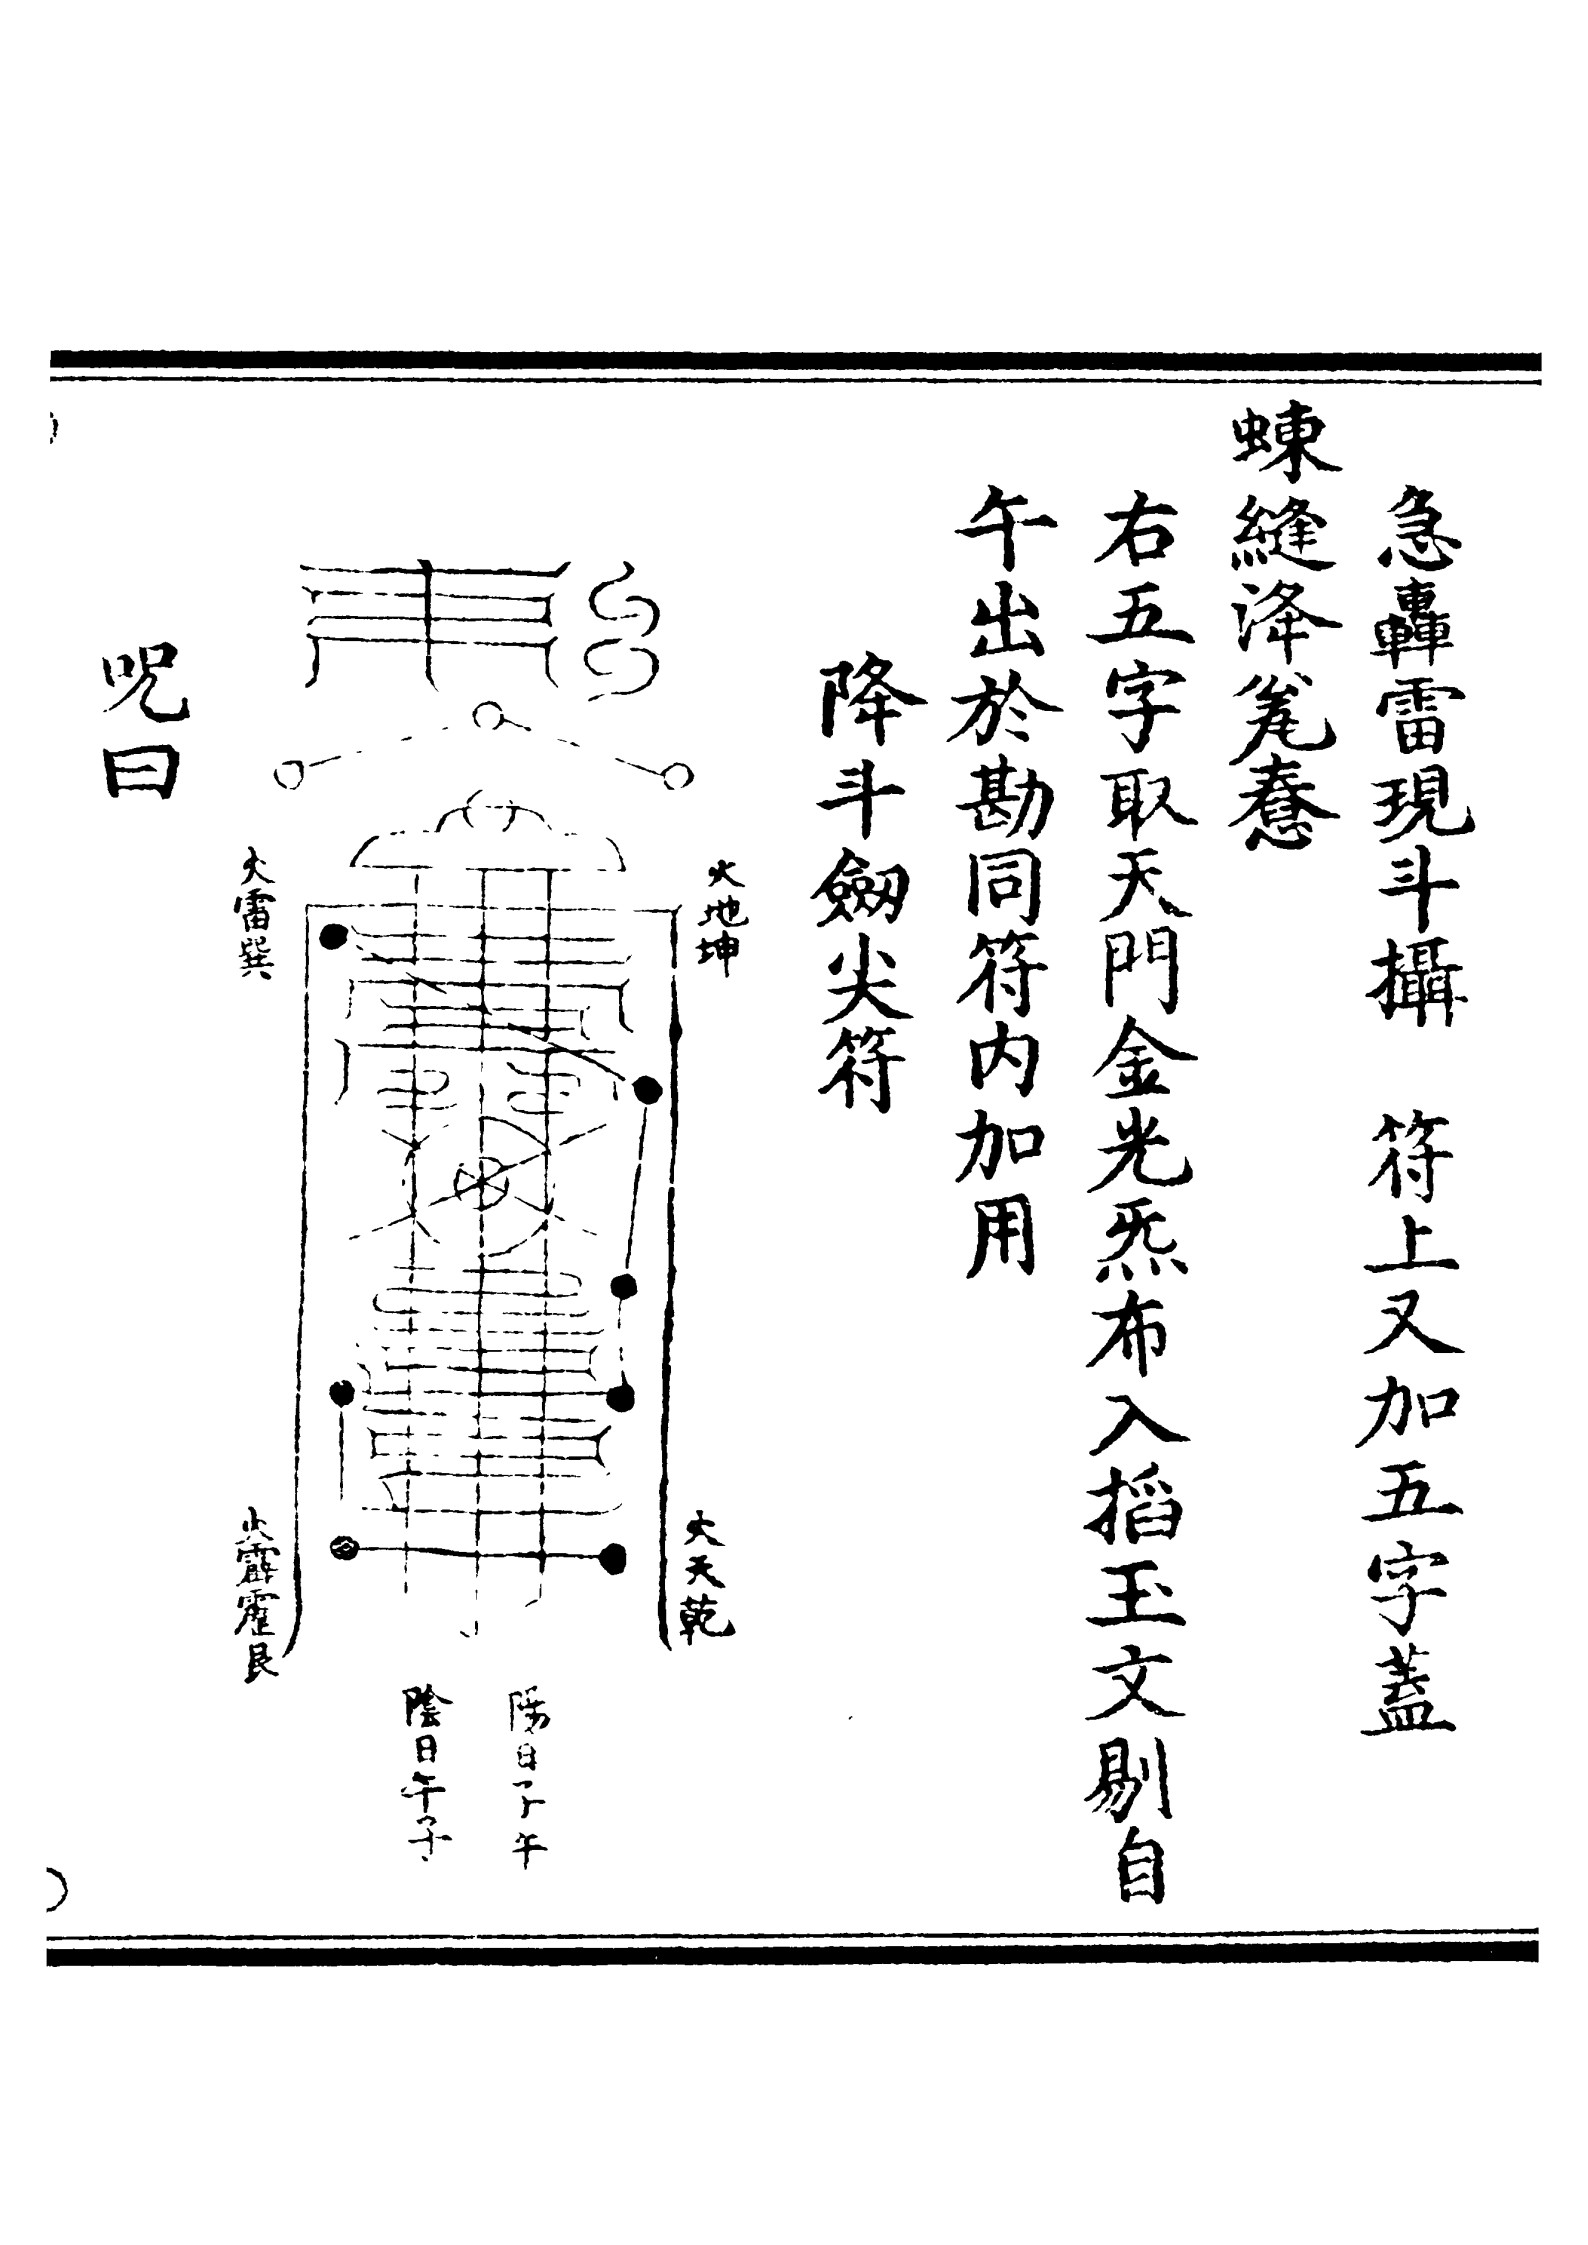 急轟雷現斗攝　符上又加五字蓋
蝀縫洚㲋惷
右五字取天門金光炁布入搯玉文剔自
午出於勘同符内加用
降斗劒尖符
火地坤
火天乾
火雷巽
火霹靂艮
陽日子午
陰日午子
呪曰